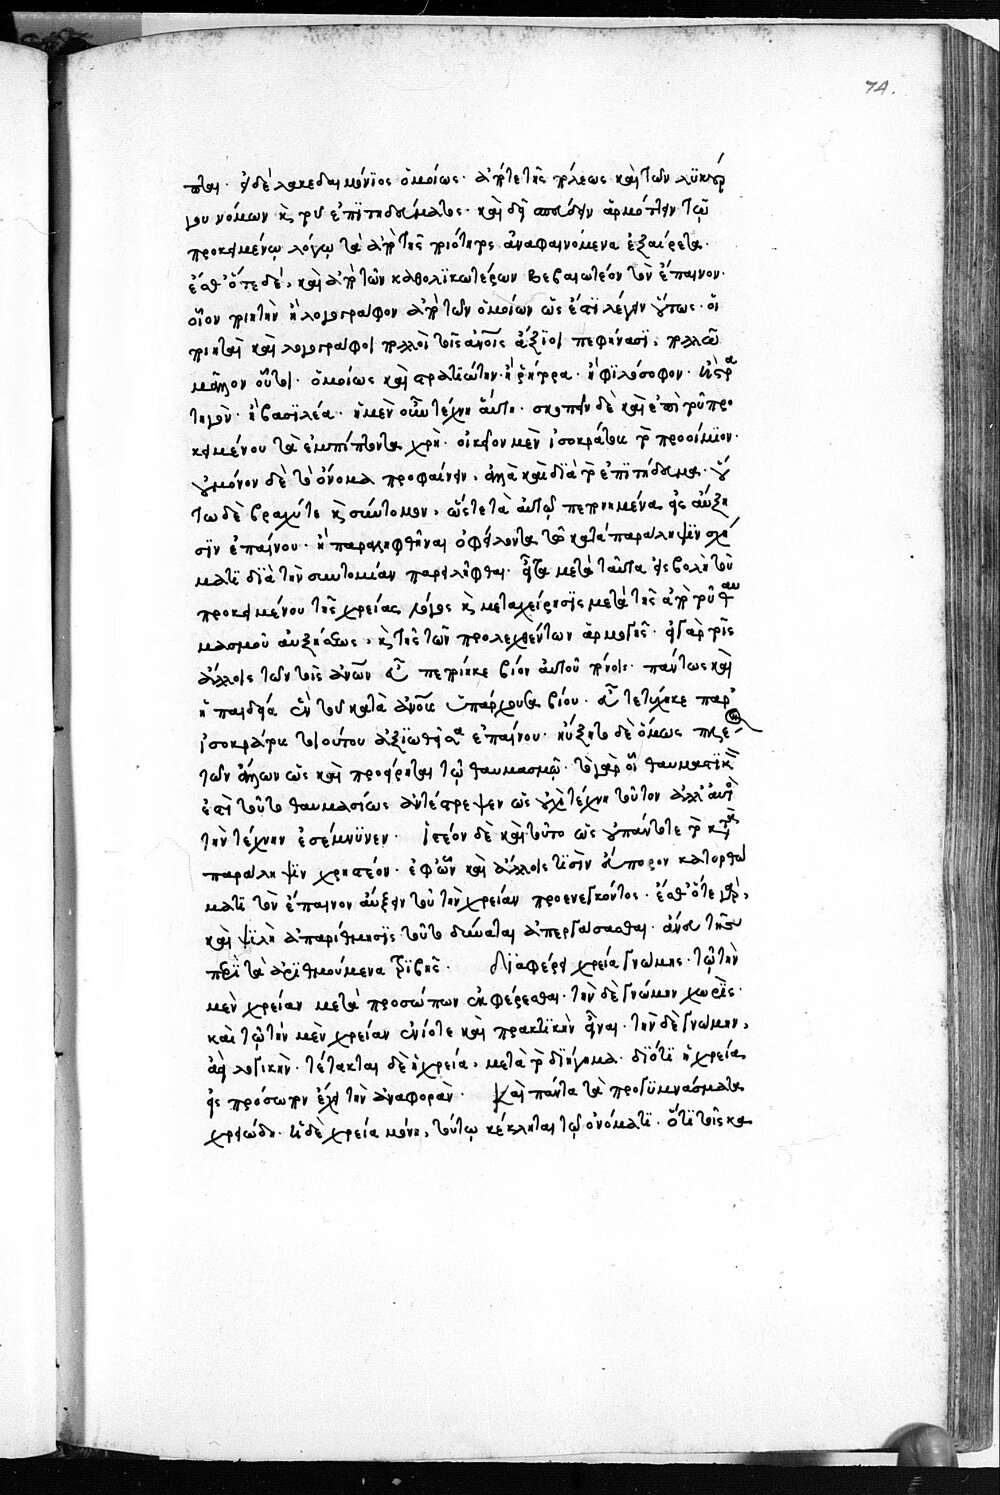 74.
πται. εἰ δὲ λακεδαιμόνιος ὁμοίως. ἀπό τε τῆς πόλεως καὶ τῶν λυκούρ
γου νόμων καὶ τοῦ ἐπιτηδεύματος. καὶ δεῖ σπεύδειν ἁρμόττειν τῷ
προκειμένῳ λόγῳ τὰ ἀπὸ τῆς ποιότητος ἀναφαινόμενα ἐξαίρετα.
ἔσθ' ὅτε δέ, καὶ ἀπὸ τῶν καθολικωτέρων βεβαιωτέον τὸν ἔπαινον.
οἷον ποιητὴν ἢ λογογράφον ἀπὸ τῶν ὁμοίων ὡς ἔστι λέγειν οὕτως. οἱ
ποιηταὶ καὶ λογογράφοι πολλοὶ τοῖς ἀνοις ἄξιοι πεφήνασι, πολλῷ
μᾶλλον οὗτοι. ὁμοίως καὶ στρατιώτην. ἢ ῥήτορα. ἢ φιλόσοφον. ἢ στρα
τηγὸν. ἢ βασιλέα. ἡ μὲν οὖν τέχνη αὕτη. σκοπεῖν δὲ καὶ ἐπὶ τοῦ προ
κειμένου τὰ ἐμπίπτοντα χρή. οἰκεῖον μὲν ἰσοκράτει τὸ προοίμιον.
οὐ μόνον δὲ τὸ ὄνομα προφαίνειν, ἀλλὰ καὶ διὰ τὸ ἐπιτήδευμα. οὕ
τω δὲ βραχύ τε καὶ σύντομον, ὥστε τὰ αὐτῷ πεποιημένα εἰς αὔξη
σιν ἐπαίνου. ἢ παραληφθῆναι ὀφείλοντα τῷ κατὰ παράλειψιν σχή
ματι διὰ τὴν συντομίαν παρειλῆφθαι. εἶτα μετὰ ταῦτα εἰσβολὴ τοῦ
προκειμένου τῆς χρείας λόγος καὶ μεταχείρησις μετὰ τῆς ἀπὸ τοῦ θαυ
μασμοῦ αὐξήσεως, καὶ τῆς τῶν προλεχθέντων ἁρμογῆς. εἰ γὰρ τοῖς
ἄλλοις τῶν τοῖς ἀνων πεποίηκε βίον αὐτοῦ πόνοις. πάντως καὶ
ἡ παιδεία ἓν τῶν κατὰ ἀνους ὑπάρχουσα βίου. οὐ τετύχηκε παρ'
ἰσοκράτει τοιούτου ἀξιωθεῖσα ἐπαίνου. ηὔξητο δὲ ὅμως πλέον
τῶν ἄλλων ὡς καὶ προείρηται τῷ θαυμασμῷ. τὸ γὰρ οἱ θαυμαστικὸν
ἐπὶ τοῦτο θαυμασίως ἀντέστρεψεν ὡς οὐχὶ τέχνη τοῦτον ἀλλ' αὐτὸς
τὴν τέχνην ἐσέμνυνεν. ἰστέον δὲ καὶ τοῦτο ὡς οὐ πάντοτε τὸ κατὰ
παράλειψιν χρηστέον. ἐφ' ὧν καὶ ἄλλοις τισὶν εὔπορον κατορθώ
ματι τὸν ἔπαινον αὔξειν τοῦ τὴν χρείαν προενεγκόντος. ἔσθ' ὅτε γὰρ,
καὶ ψιλὴ ἀπαρίθμησις τοῦτο δύναται ἀπεργάσασθαι. ἄνευ τῆς
περὶ τὰ ἀριθμούμενα τριβῆς. Διαφέρει χρεία γνώμης. τῷ τὴν
μὲν χρείαν μετὰ προσώπων ἐκφέρεσθαι. τὴν δὲ γνώμην χωρὶς.
καὶ τῷ τὴν μὲν χρείαν ἐνίοτε καὶ πρακτικὴν εἶναι. τὴν δὲ γνώμην,
ἀεὶ λογικὴν. τέτακται δὲ ἡ χρεία, μετὰ τὸ διήγημα. διότι ἡ χρεία
εἰς πρόσωπον ἔχει τὴν ἀναφορὰν. Καὶ πάντα τὰ προγυμνάσματα
χρειώδη. ἡ δὲ χρεία μόνη, τούτῳ κέκληται τῷ ὀνόματι. ὅτι τοῖς κα